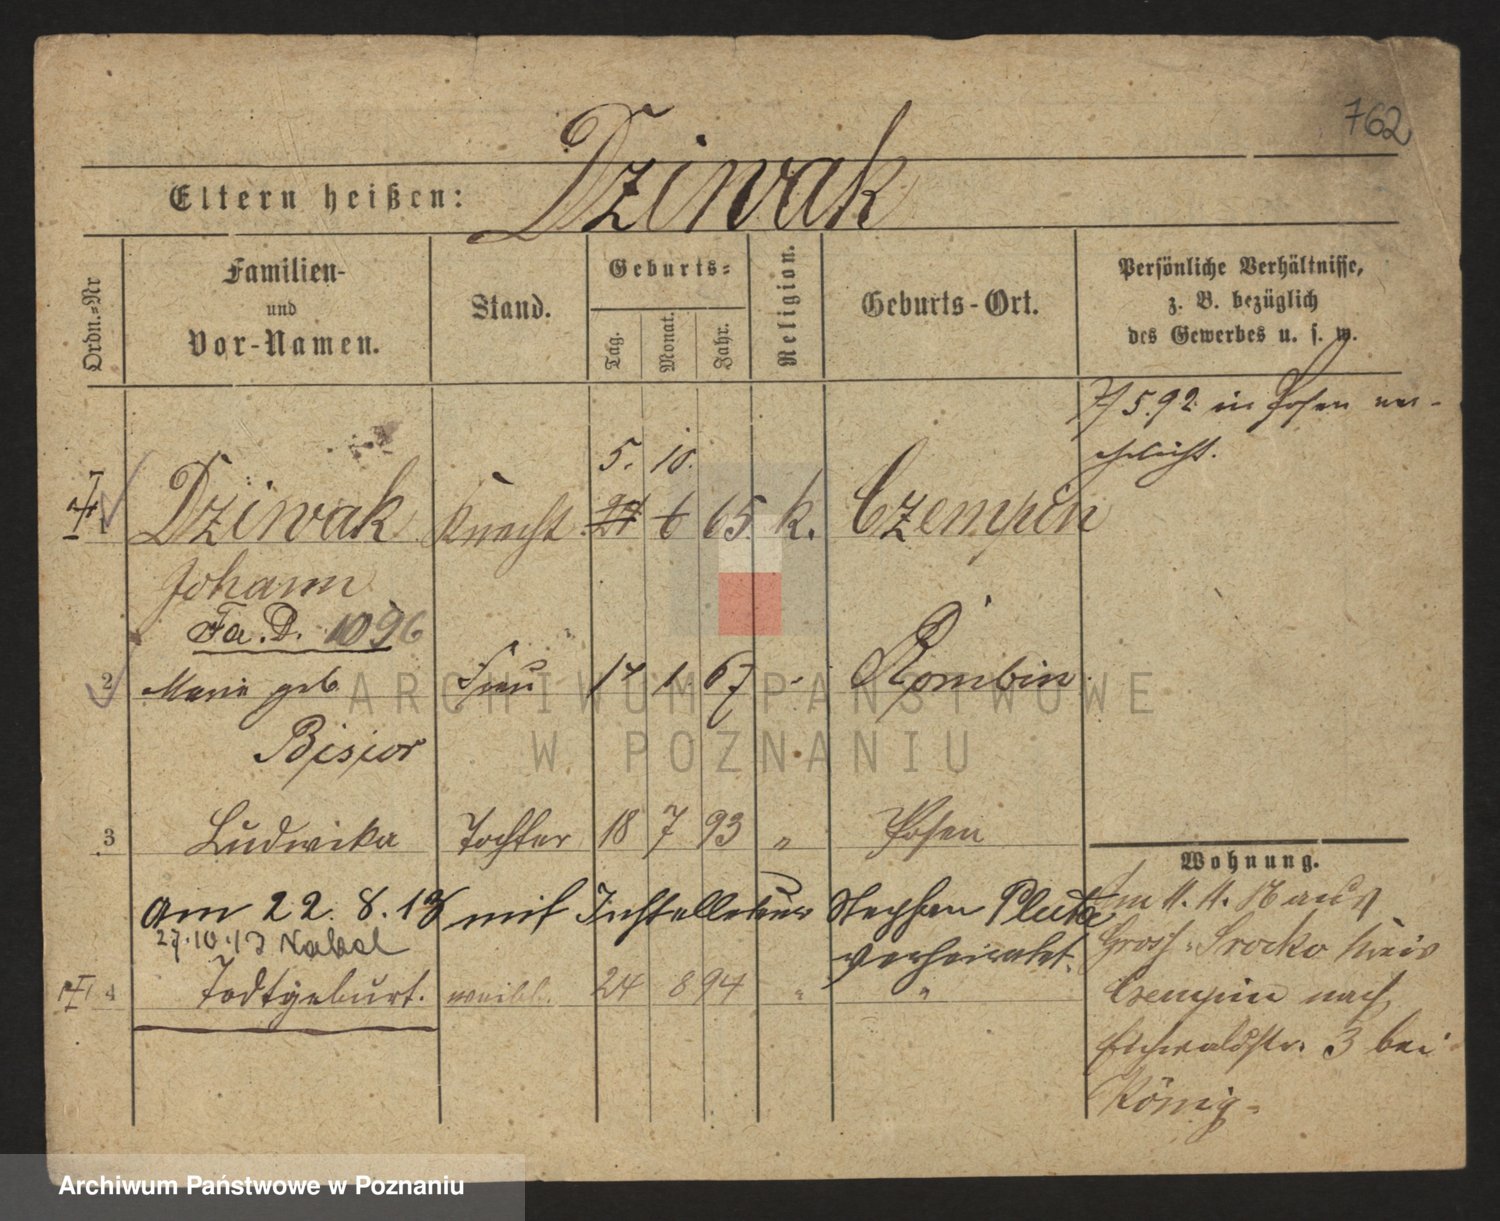 762
Dziwak
Eltern heißen:
Ordn.-Nr
Familien-
und
Vor-Namen.
Stand.
Geburts-
Tag.
Monat.
Jahr.
Religion.
Geburts-Ort.
Persönliche Verhältnisse,
z. B. bezüglich
des Gewerbes u. s. w.
7/5.92 in Posen ver-
ehelicht.
5. 10.
Dziwak Knecht 27 6 65. k. Czempin
Johann
Fa. D. 1096
2 Marie geb. Frau 17 1. 67 " Rombin
Bisior
3 Ludwika Tochter 18 7 93 " Posen
Wohnung.
Am 22. 8. 13 mit Stephan Pluta
verheiratet.
27.10.13
4 Todtgeburt. weibl. 24 8 94 " "
Am 11. 11. aus
Gross-Srocko Kreis
Czempin nach
Eichwaldstr. 3 bei
König-
ARCHIWUM PAŃSTWOWE
W POZNANIU
Archiwum Państwowe w Poznaniu